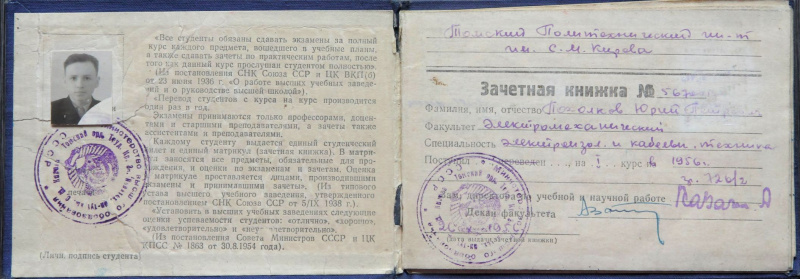 «Все студенты обязаны сдавать экзамены за полный
курс каждого предмета, вошедшего в учебные планы,
а также сдавать зачеты по практическим работам, после
того как данный курс прослушан студентом полностью».
(Из постановления СНК Союза ССР и ЦК ВКП(б)
от 23 июня 1936 г. «О работе высших учебных заведе-
ний и о руководстве высшей школой»).
«Перевод студентов с курса на курс производится
один раз в году.
Экзамены принимаются только профессорами, доцен-
тами и старшими преподавателями, а зачеты также
ассистентами и преподавателями.
Каждому студенту выдается единый студенческий
билет и единый матрикул (зачетная книжка). В матри-
кул заносятся все предметы, обязательные для про-
хождения, и оценки по экзаменам и зачетам. Оценка
в матрикуле проставляется лицами, производившими
экзамены и принимавшими зачеты». (Из типового
устава высшего учебного заведения, утвержденного
постановлением СНК Союза ССР от 5/IX 1938 г.).
«Установить в высших учебных заведениях следующие
оценки успеваемости студентов: «отлично», «хорошо»,
«удовлетворительно» и «неудовлетворительно».
(Из постановления Совета Министров СССР и ЦК
КПСС № 1863 от 30.8.1954 года).
(Личн. подпись студента)
Томский Политехнический ин-т
им. С. М. Кирова
Зачетная книжка №
Фамилия, имя, отчество Похолков Юрий Петрович
Факультет Электромеханический
Специальность Электроизол. и кабельн. техника
на I курс в 1956 г.
гр. 726/2
Зам. директора по учебной и научной работе
Декан факультета
(дата выдачи книжки)